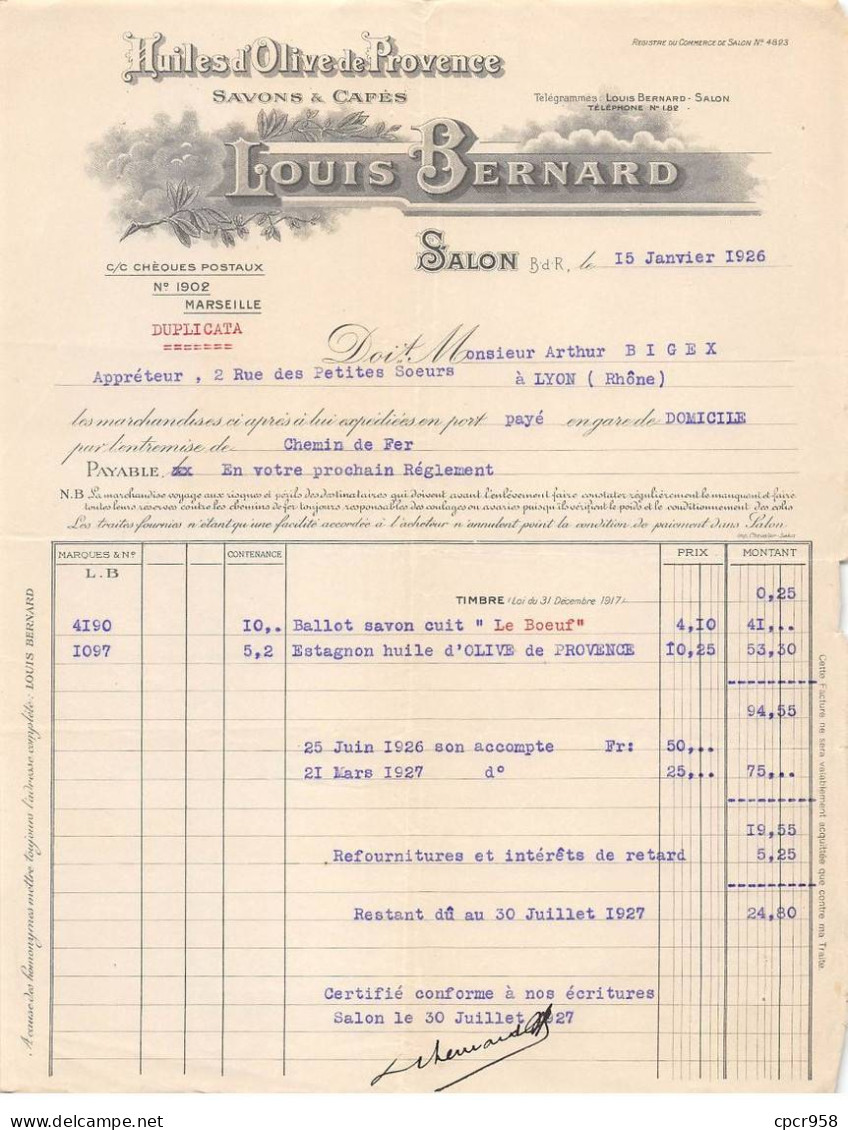 Huiles d'Olive de Provence
REGISTRE DU COMMERCE DE SALON No 4893
SAVONS & CAFÉS
Télégrammes: LOUIS BERNARD - SALON
TÉLÉPHONE No 1.82
LOUIS BERNARD
SALON B-d-R, le 15 Janvier 1926
C/C CHÈQUES POSTAUX
No 1902
MARSEILLE
DUPLICATA
=======
Doit, Monsieur Arthur B I G E X
Appréteur , 2 Rue des Petites Soeurs à LYON ( Rhône)
les marchandises ci après à lui expédiées en port payé en gare de DOMICILE
par l'entremise de Chemin de Fer
PAYABLE, En votre prochain Réglement
N.B La marchandise voyage aux risques et périls des destinataires qui doivent avant l'enlèvement faire constater régulièrement le manquant et faire
toutes leurs réserves contre les chemins de fer toujours responsables des coulages ou avaries puisqu'ils vérifient le poids et le conditionnement des colis
Les traites fournies n'étant qu'une facilité accordée à l'acheteur n'annulent point la condition de paiement dans Salon
Imp. Chevalier-Salon
MARQUES & No CONTENANCE PRIX MONTANT
L.B
TIMBRE (Loi du 31 Décembre 1917) 0,25
4I90 I0,. Ballot savon cuit " Le Boeuf" 4,I0 4I,..
I097 5,2 Estagnon huile d'OLIVE de PROVENCE I0,25 53,30
94,55
25 Juin I926 son accompte Fr: 50,..
2I Mars I927 d° 25,.. 75,..
I9,55
Refournitures et intérêts de retard 5,25
Restant dû au 30 Juillet I927 24,80
Certifié conforme à nos écritures
Salon le 30 Juillet I927
LBernard
A cause des homonymes mettre toujours l'adresse complète: LOUIS BERNARD
Cette Facture ne sera valablement acquittée que contre ma Traite
www.delcampe.net
cpcr958